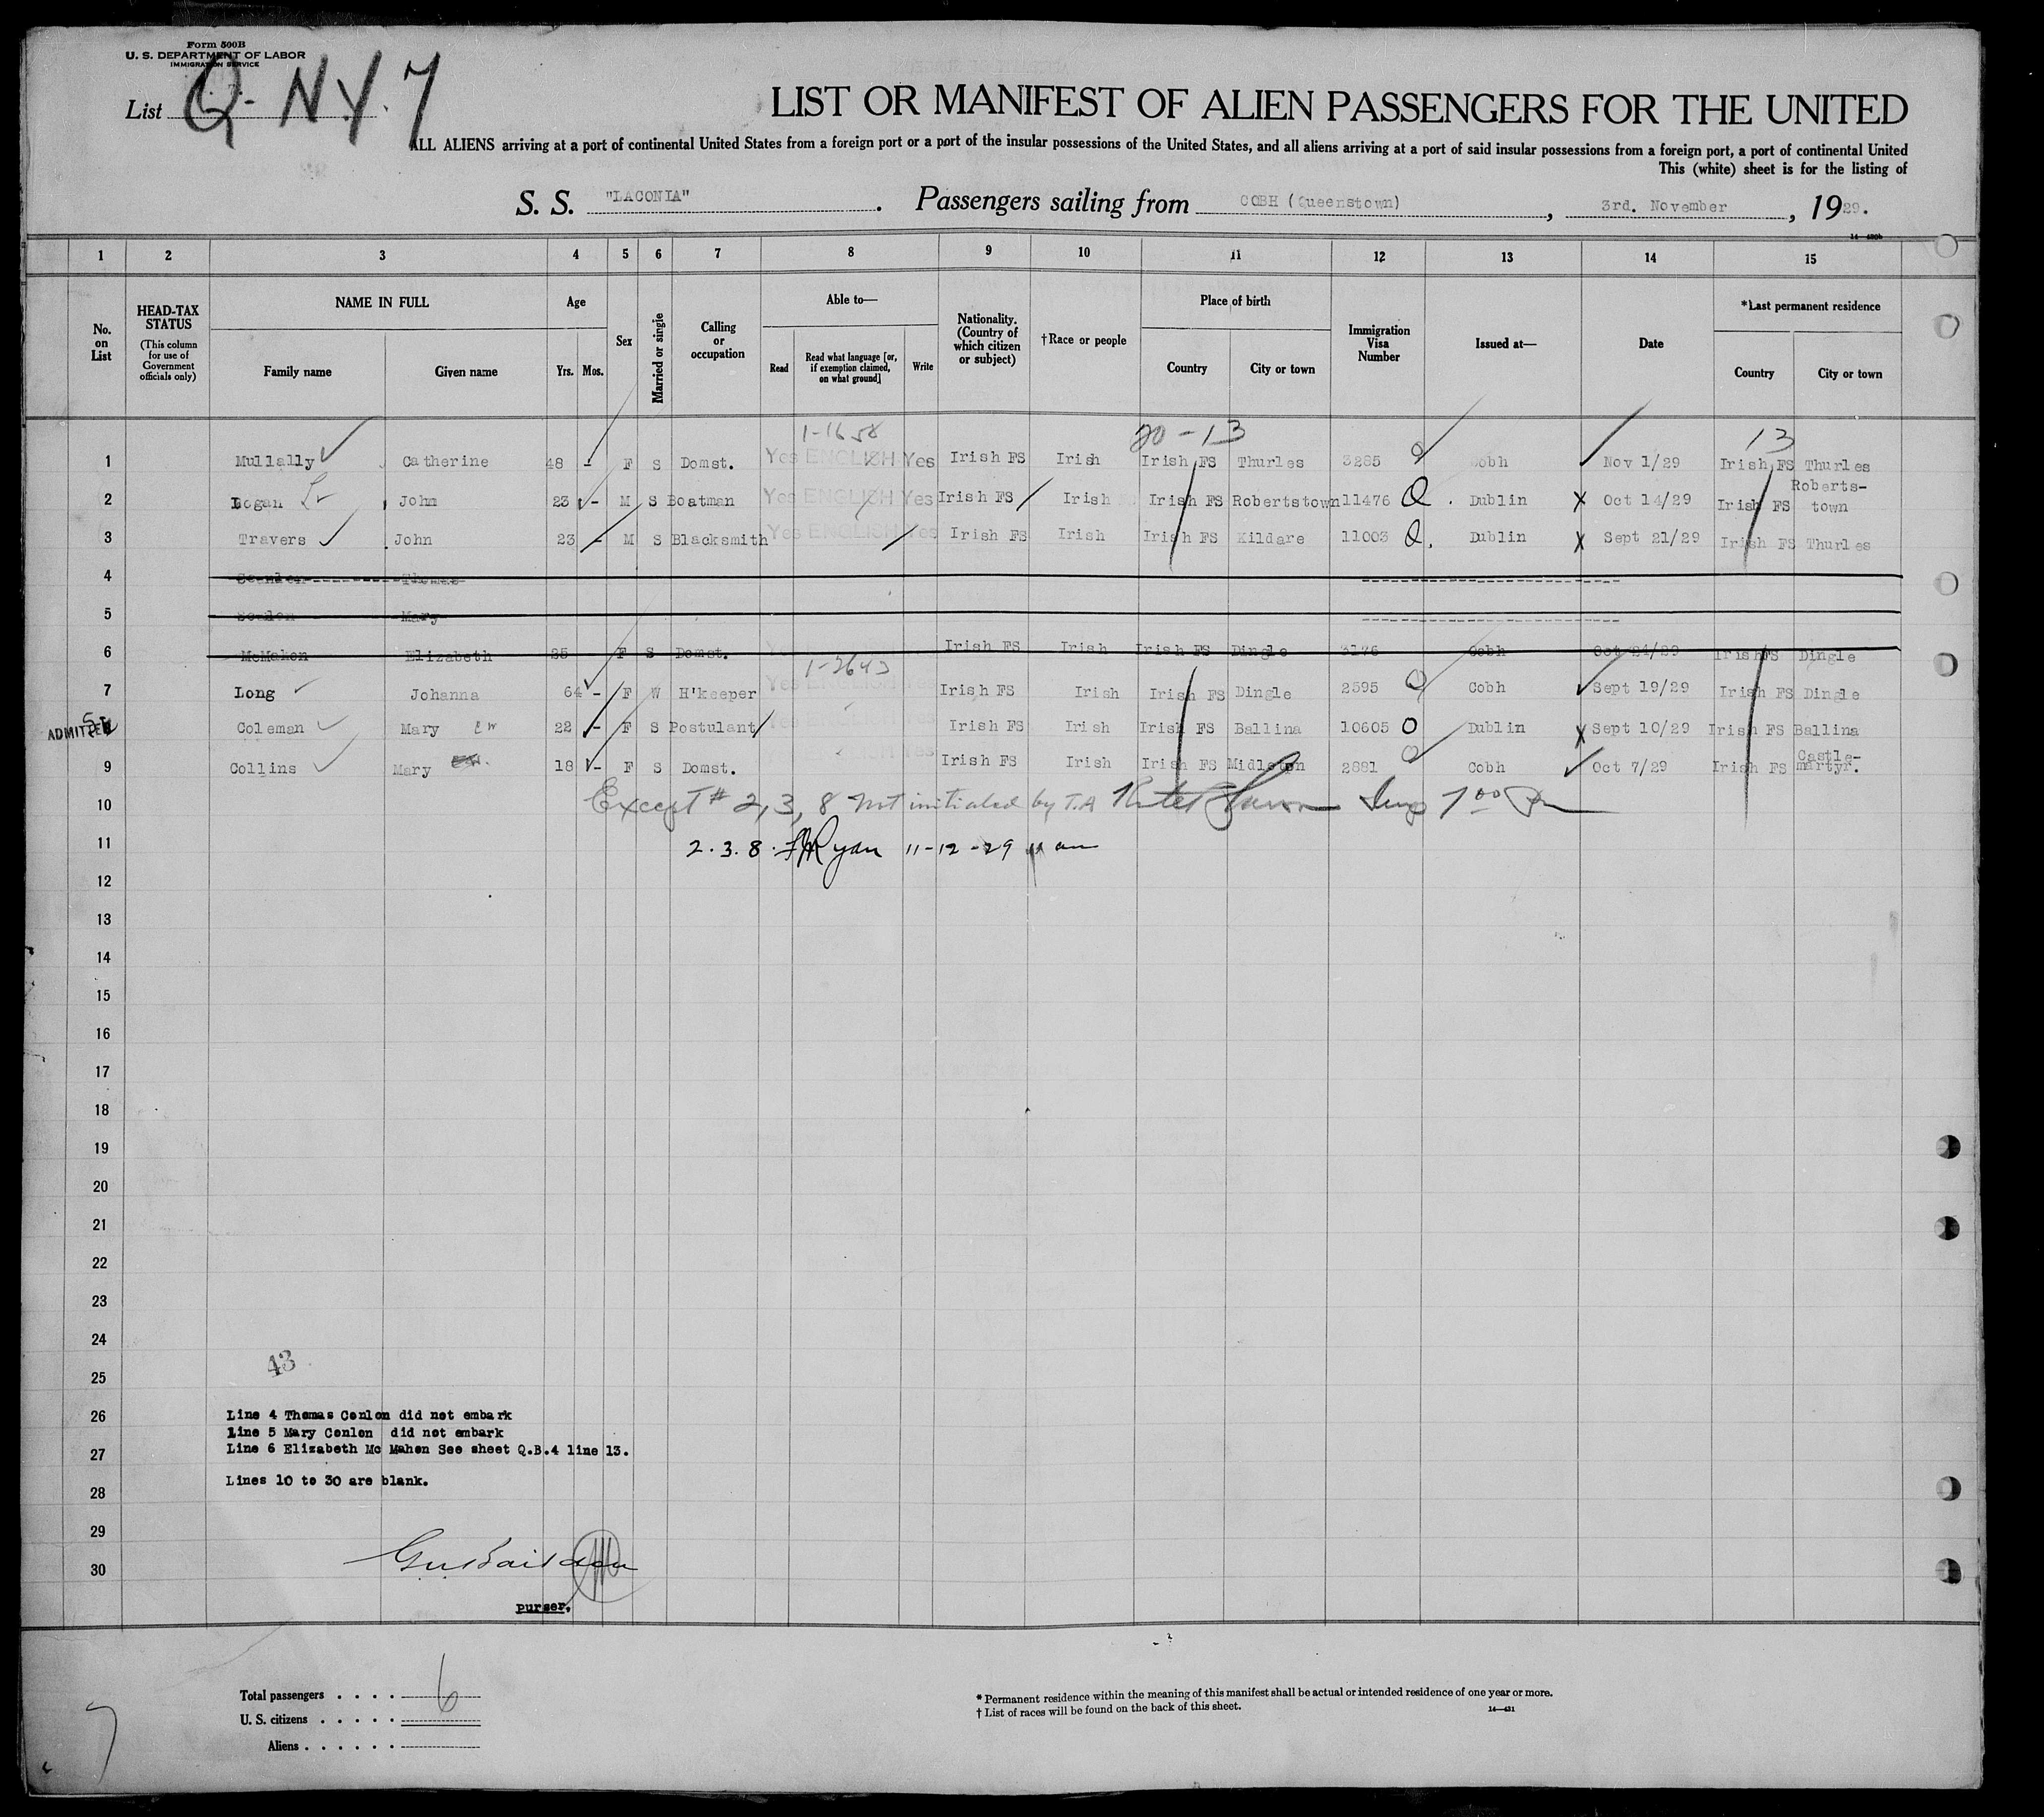 Form 500B
U. S. DEPARTMENT OF LABOR
IMMIGRATION SERVICE
List Q- NY. 7
LIST OR MANIFEST OF ALIEN PASSENGERS FOR THE UNITED
ALL ALIENS arriving at a port of continental United States from a foreign port or a port of the insular possessions of the United States, and all aliens arriving at a port of said insular possessions from a foreign port, a port of continental United
This (white) sheet is for the listing of
S. S. "LACONIA". Passengers sailing from COBH (Queenstown), 3rd. November, 1929.
1 2 3 4 5 6 7 8 9 10 11 12 13 14 15
No. on List
HEAD-TAX STATUS (This column for use of Government officials only)
NAME IN FULL
Family name Given name
Age
Yrs. Mos.
Sex
Married or single
Calling or occupation
Able to—
Read Read what language [or, if exemption claimed, on what ground] Write
Nationality. (Country of which citizen or subject)
†Race or people
Place of birth
Country City or town
Immigration Visa Number
Issued at—
Date
*Last permanent residence
Country City or town
20-13 13
1 Mullally Catherine 48 - F S Domst. Yes ENGLISH Yes Irish FS Irish Irish FS Thurles 3285 Cobh Nov 1/29 Irish FS Thurles
2 Logan John 23 - M S Boatman Yes ENGLISH Yes Irish FS Irish Irish FS Robertstown 11476 Q. Dublin X Oct 14/29 Irish FS Roberts-town
3 Travers John 23 - M S Blacksmith Yes ENGLISH Yes Irish FS Irish Irish FS Kildare 11003 Q. Dublin X Sept 21/29 Irish FS Thurles
4 Thomas
5 Mary
6 McMahon Elizabeth 25 F S Domst. Irish FS Irish Irish FS Dingle 3176 Cobh Oct 24/29 Irish FS Dingle
1-2643
7 Long Johanna 64 - F W H'keeper Irish FS Irish Irish FS Dingle 2595 Cobh Sept 19/29 Irish FS Dingle
ADMITTED 8 Coleman Mary 22 - F S Postulant Irish FS Irish Irish FS Ballina 10605 Dublin X Sept 10/29 Irish FS Ballina
9 Collins Mary 18 - F S Domst. Yes Irish FS Irish Irish FS Midleton 2881 Cobh Oct 7/29 Irish FS Castle-martyr.
10 Except # 2, 3, 8 not initialed by T.A
11 2. 3. 8. Ryan 11-12-29
12
13
14
15
16
17
18
19
20
21
22
23
24
43
25
26 Line 4 Thomas Conlon did not embark
Line 5 Mary Conlon did not embark
27 Line 6 Elizabeth Mc Mahon See sheet Q.B.4 line 13.
Lines 10 to 30 are blank.
28
29
30
purser.
Total passengers . . . . 6
U. S. citizens . . . . .
Aliens . . . . . .
* Permanent residence within the meaning of this manifest shall be actual or intended residence of one year or more.
† List of races will be found on the back of this sheet.
14—431
7